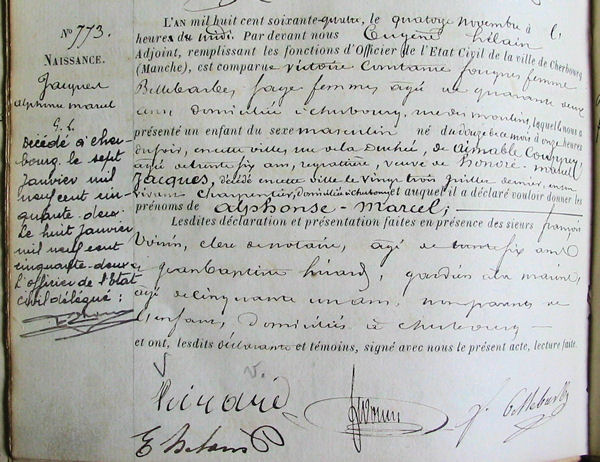 N° 773.
NAISSANCE.
Jacques
alphonse marcel
Décédé à cher-
bourg le sept
janvier mil
neuf cent cin-
quante deux
Le huit janvier
mil neuf cent
cinquante-deux
L'officier de l'Etat
civil délégué :
L'AN mil huit cent soixante-quatre, le quatorze novembre à
heures du midi. Par devant nous Eugène
Adjoint, remplissant les fonctions d'Officier de l'Etat Civil de la ville de Cherbourg
(Manche), est comparue victoire Constance femme
sage femme, agée de quarante deux
ans, domiciliée à cherbourg, rue des moulins, laquelle nous a
présenté un enfant du sexe masculin né du douze de ce mois à onze heures
du soir, en cette ville, rue la Duchée, de Aimable
agée de trente six ans, veuve de honoré marcel
Jacques, décédé en cette ville le vingt trois juillet dernier, en son
vivant charpentier, domicilié à cherbourg et auquel il a déclaré vouloir donner les
prénoms de alphonse-marcel;
Lesdites déclaration et présentation faites en présence des sieurs françois
clerc de notaire, agé de trente six ans
et jean baptiste gardien à la marine,
agé de cinquante un ans, non parents de
l'enfant, domiciliés à cherbourg
et ont, lesdits déclarante et témoins, signé avec nous le présent acte, lecture faite.